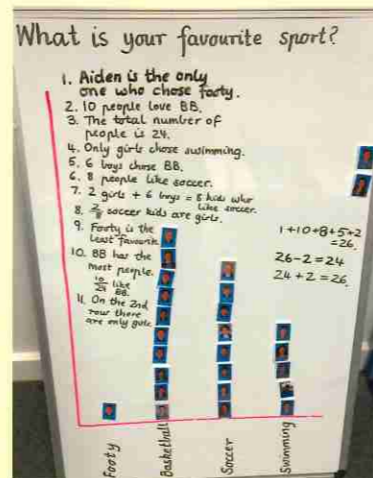 What is your favourite sport?
1. Aiden is the only
one who chose footy.
2. 10 people love BB.
3. The total number of
people is 24.
4. Only girls chose swimming.
5. 6 boys chose BB.
6. 8 people like soccer.
7. 2 girls + 6 boys = 8 kids who
like soccer.
8. 2/8 soccer kids are girls.
9. Footy is the
least favourite
10. BB has the
most people.
10/24 like
BB.
11. On the 2nd
row there
are only girls.
1+10+8+5+2
=26.
26-2=24
24+2=26.
Footy
Basketball
Soccer
Swimming